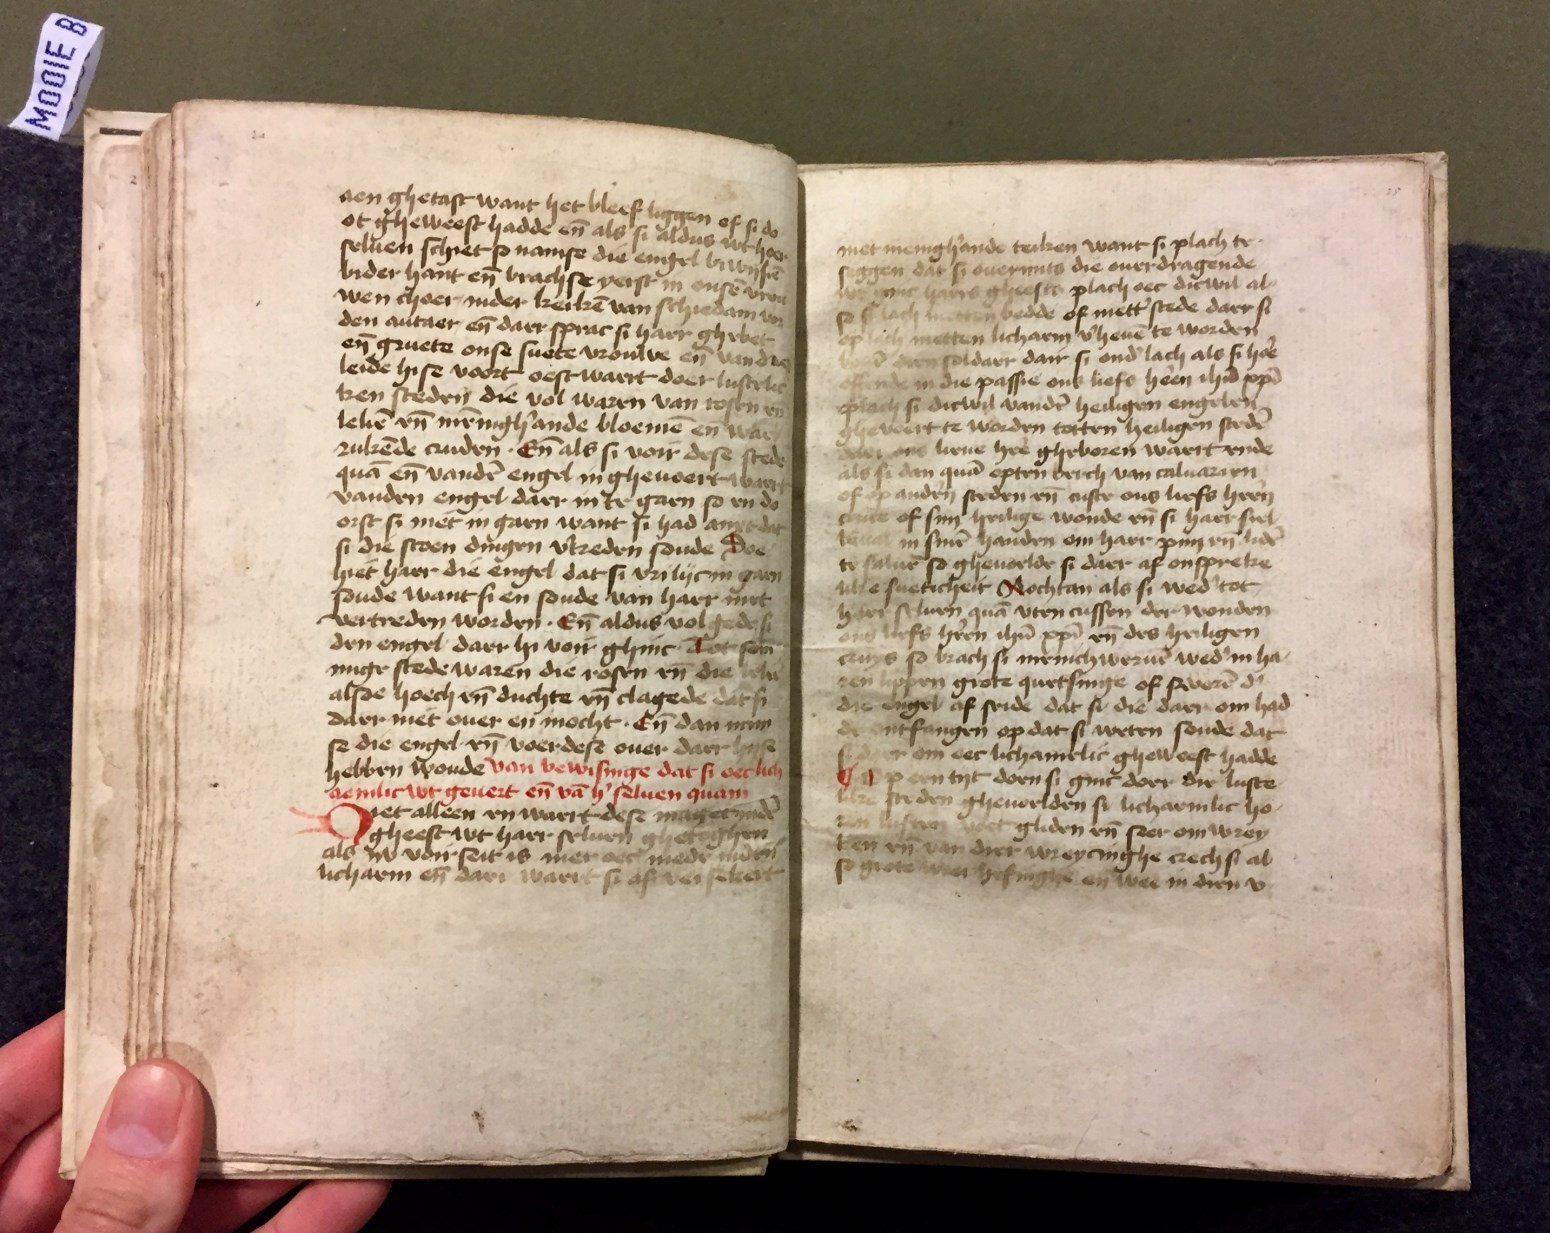 MOOIE B
aen ghetast want het bleef liggen of si do
ot gheweest hadde en̄ als si aldus wt hoer
seluen schiet so namse die engel
bider hant en̄ brachse yerst in onsē vrou
wen choer inder kerkē van schiedam voer
den autaer en̄ daer sprac si haer ghebet
en̄ gruete onse suete vrouwe en̄ van
leide hise voert oestwaert doer lustelic
ken steden die vol waren van rosen en̄
leliē en̄ mēnigh'ande bloemē en̄
rukēde cruden · En̄ als si voir dese stede
quā en̄ vandē engel in ghevoert wart
vanden engel daer in te gaen so en do
orst si niet in gaen want si had anxt dat
si die scoen dingen v'treden soude Doe
hiet haer die engel dat si vrilijc in gaen
soude want si en soude van haer niet
vertreden worden · En̄ aldus volgede si
den engel daer hi voir ghinc ·
nige stede waren die rosen en̄ die
alsoe hoech en̄ duchte en̄ clagede dat si
daer niet ouer en mocht · En̄ dan nam
se die engel en̄ voerdese ouer daer hise
hebben woude van bewisinge dat si oec lich
aemlic wt geuert en̄ vā h' seluen quam
Niet alleen en waert dese maget indē
gheest wt haer seluen ghetoghen
als voir seit is mer oec mede inden
licham en̄ daer waert si af verseker
25
met menigh'ande teiken want si plach te
seggen dat si ouermits die ouerdragende
haers gheests plach oec dicwil al
so si lach metten bedde of mett' stede daer si
op lach metten licham v'heuē te worden
den soldaer dair si ond' lach als si hoer
offende in die passie ons liefs heren ihū xpī
plach si dicwil vandē heiligen engelen
ghevoert te worden totten heiligen stedē
daer ons lieue here gheboren waert ende
als si dan quā opten berch van caluarien
of op anden steden en̄ custe ons liefs heren
cruce of sinn heilige wonde en̄ si haer siel
beual in sinē handen om haer pijn en̄ lidē
te saluē so gheuoelde si daer af onspreke
like sueticheit Nochtan als si wed' tot
haer seluen quā vten cussen der wonden
ons liefs heren ihū xpī en̄ des heiligen
cruys so brach si menichweruē wed' in ha
ren lippen grote quetsinge of sweerē d'
die engel af seide dat si die daer om had
de ontfangen op dat si weten soude dat
si daer om oec lichamelic gheweest hadde
Op een tijt doen si ginc doer die luste
like steden gheuoelden si lichaemlic ho
ren voet gliden en̄ seer omwrey
ten en̄ van dier wreyinghe crech si al
so grote en̄ wee in dien v